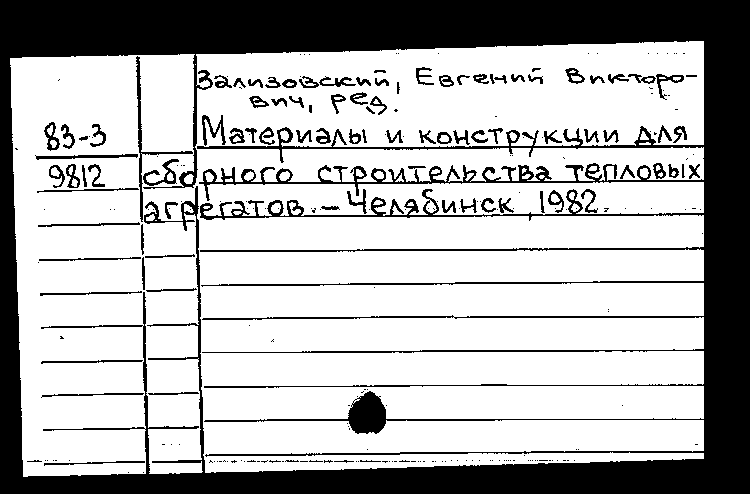 Зализовский, Евгений Викторо-
вич, ред.
83-3 Материалы и конструкции для
9812 сборного строительства тепловых
агрегатов. – Челябинск, 1982.